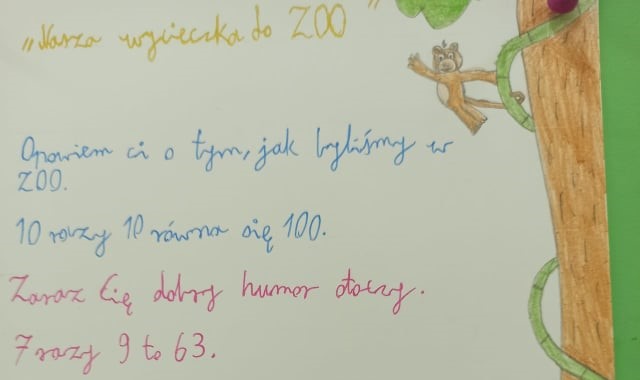 „Nasza wycieczka do ZOO”
Opowiem ci o tym, jak byliśmy w
ZOO.
10 razy 10 równa się 100.
Zaraz Cię dobry humor otoczy.
7 razy 9 to 63.